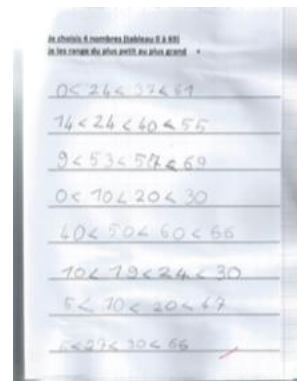 Je choisis 4 nombres (tableau 0 à 69)
Je les range du plus petit au plus grand
0 < 24 < 37 < 61
14 < 24 < 40 < 55
9 < 53 < 57 < 69
0 < 10 < 20 < 30
40 < 50 < 60 < 66
10 < 19 < 24 < 30
5 < 10 < 20 < 67
< 27 < 30 < 66